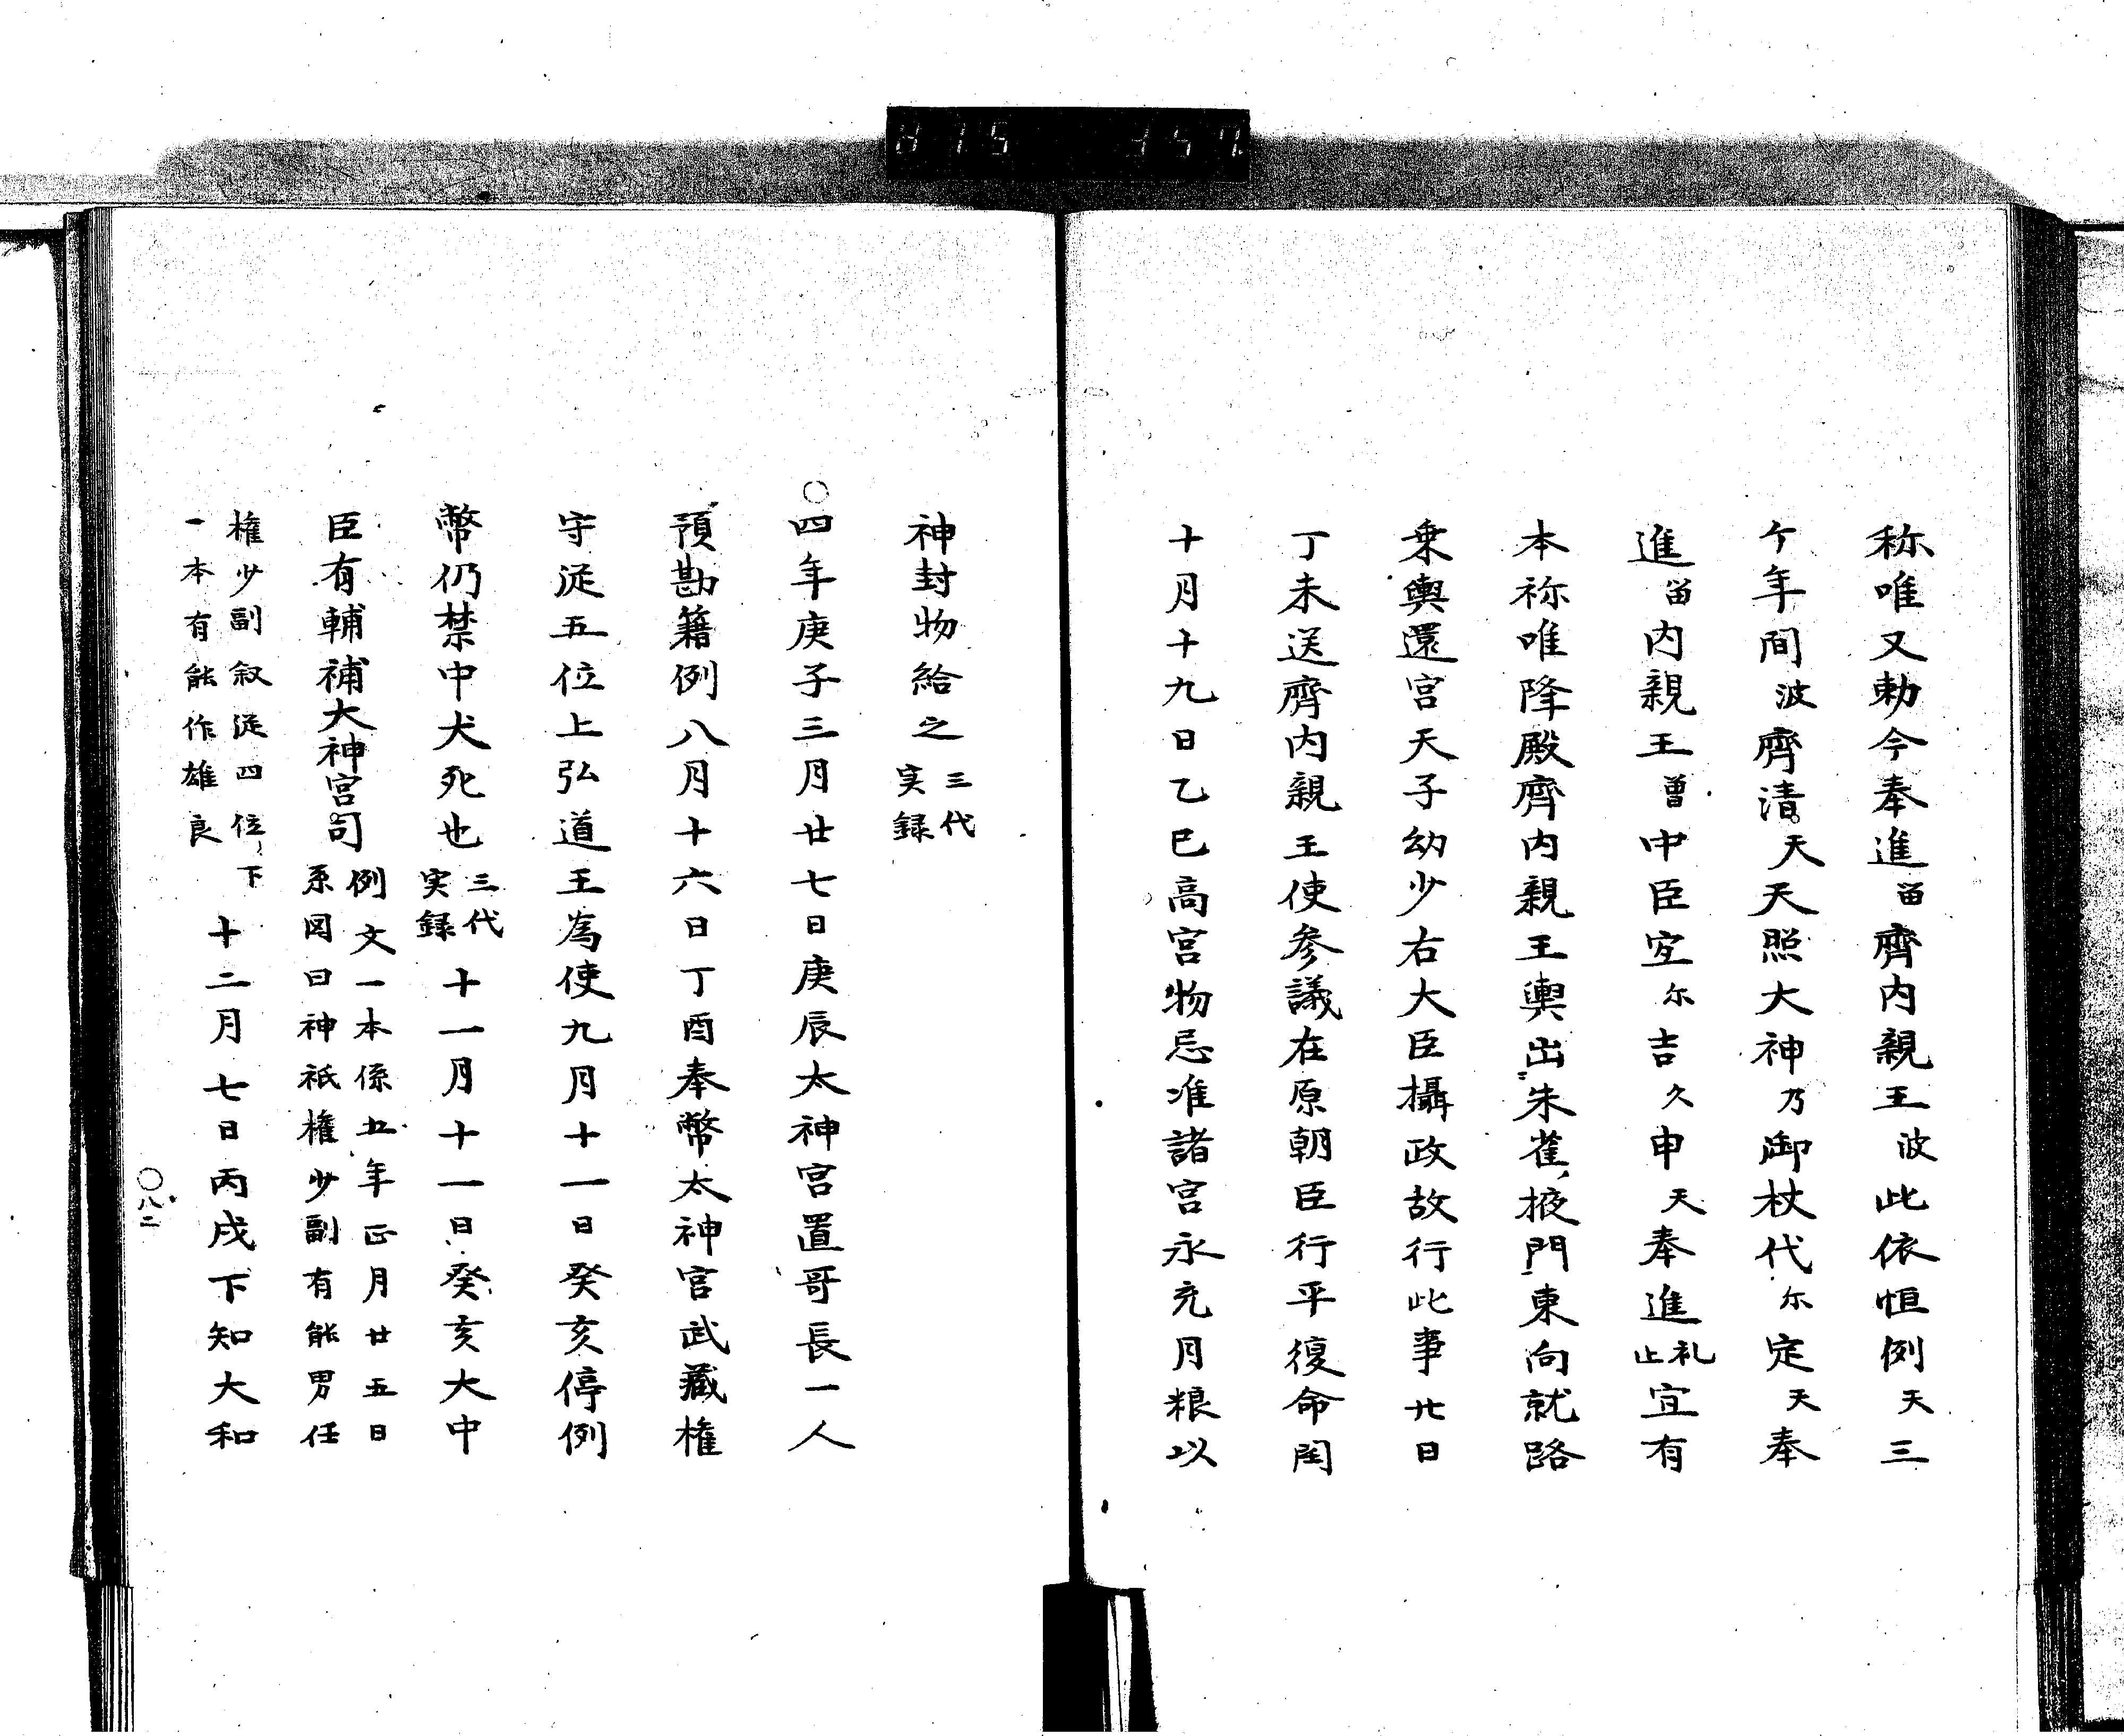 称唯又勅今奉進留齊内親王波此依恒例天三
ケ年間波齊清天天照大神乃御杖代尓定天奉
進留内親王曽中臣宜尓吉久申天奉進礼止宜有
本祢唯降殿齊内親王輿出朱雀掖門東向就路
乗輿還宮天子幼少右大臣攝政故行此事廿日
丁未送齊内親王使参議在原朝臣行平復命閏
十月十九日乙巳高宮物忌准諸宮永充月粮以
神封物給之三代実録
○四年庚子三月廿七日庚辰太神宮置哥長一人
預勘籍例八月十六日丁酉奉幣太神宮武藏権
守従五位上弘道王為使九月十一日癸亥停例
幣仍禁中犬死也三代実録十一月十一日癸亥大中
臣有輔補大神宮司例文一本係五年正月廿五日
系図曰神祇権少副有能男任
権少副叙従四位下
一本有能作雄良
十二月七日丙戌下知大和
○八二